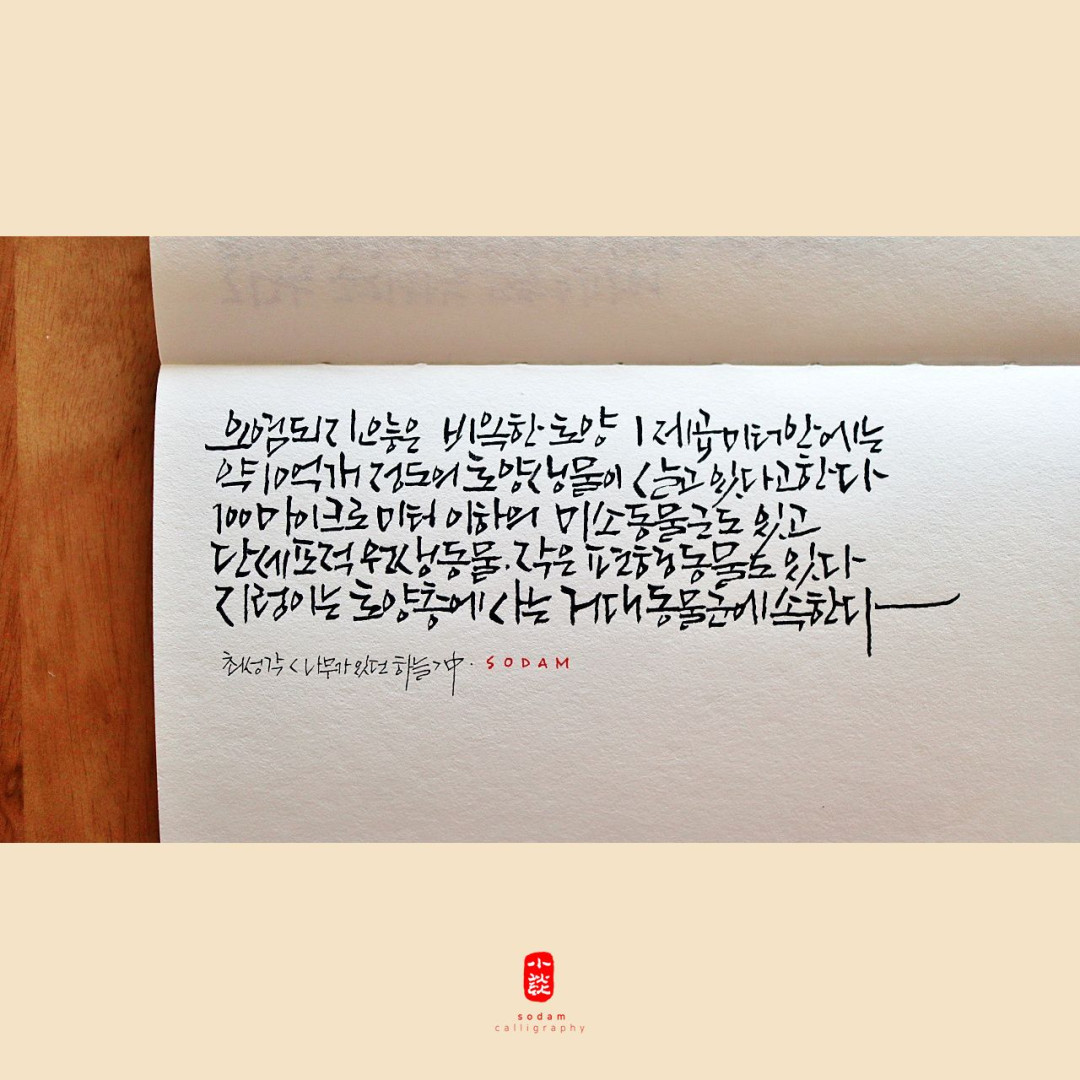 오염되지않은 비옥한 토양 1제곱미터안에는
약10억개 정도의 토양생물이 살고 있다고한다
100마이크로미터 이하의 미소동물군도 있고
단세포적 원생동물. 작은 편형동물도 있다
지렁이는 토양층에 사는 거대동물군에 속한다
최성각 <나무가 있던 하늘> 中. SODAM
小談
sodam
calligraphy